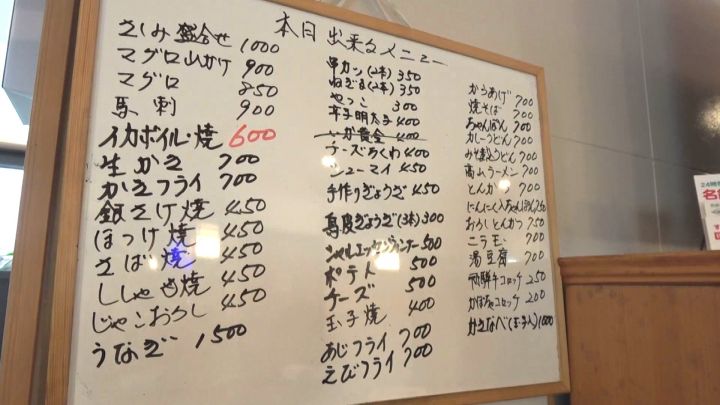 本日出来るメニュー
さしみ盛合せ 1000
マグロ山かけ 900
マグロ 850
馬刺 900
イカボイル・焼 600
生かき 700
かきフライ 700
銀さけ焼 450
ほっけ焼 450
さば焼 450
ししゃも焼 450
じゃこおろし 450
うなぎ 1500
串カツ(2本) 350
ねぎま(2本) 350
やっこ 300
辛子明太子 400
いか黄金 400
チーズちくわ 400
シューマイ 450
手作りぎょうざ 450
鳥皮ぎょうざ(3本) 300
シャルエッセンウィンナー 500
ポテト 500
チーズ 500
玉子焼 400
あじフライ 700
えびフライ 700
からあげ 700
焼そば 700
ちゃんぽん 700
カレーうどん 700
みそ煮込うどん 700
高山ラーメン 700
とんかつ 700
にんにく入ちゃんぽん 750
おろしとんかつ 750
ニラ玉 700
湯豆腐 700
飛騨牛コロッケ 250
かぼちゃコロッケ 200
かきなべ(玉子入) 1000
24時